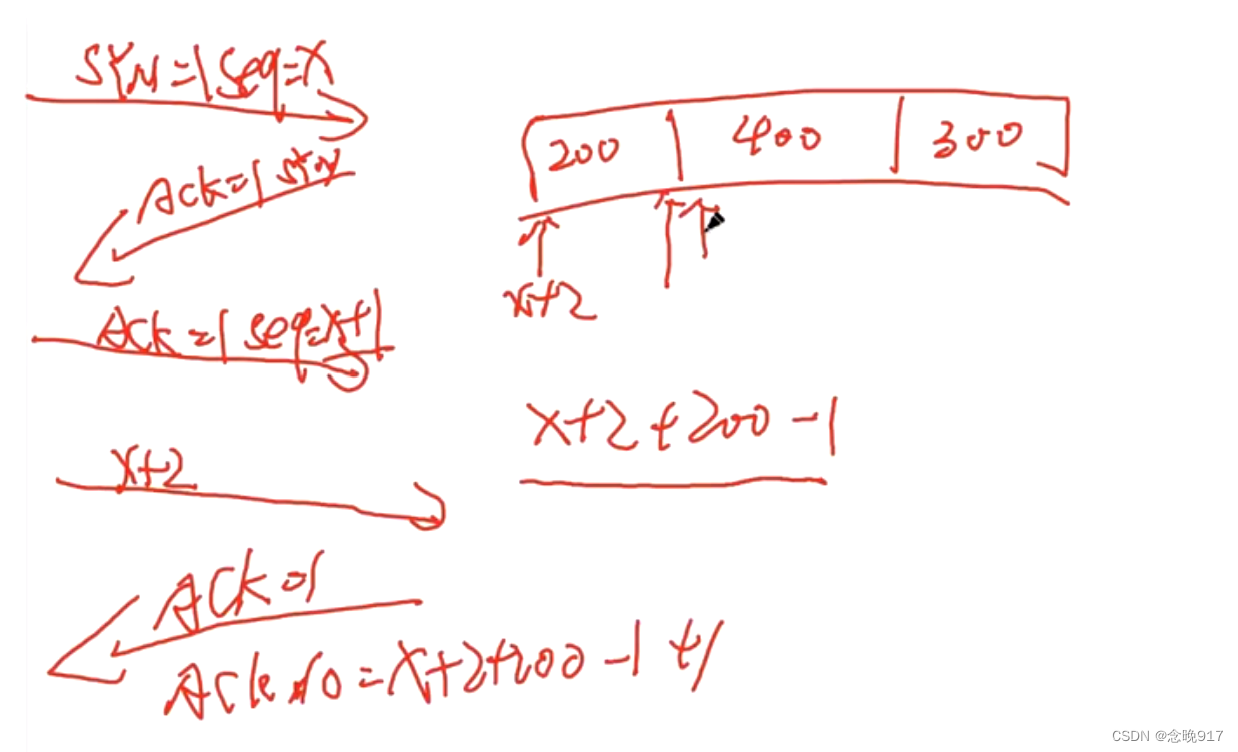 SYN=1 seq=x
Ack=1 SYN
Ack=1 seq=x+1
x+2
ACk=1
Ack no=x+2+200-1+1
200 400 300
x+2
x+2+200-1
CSDN @念晚917